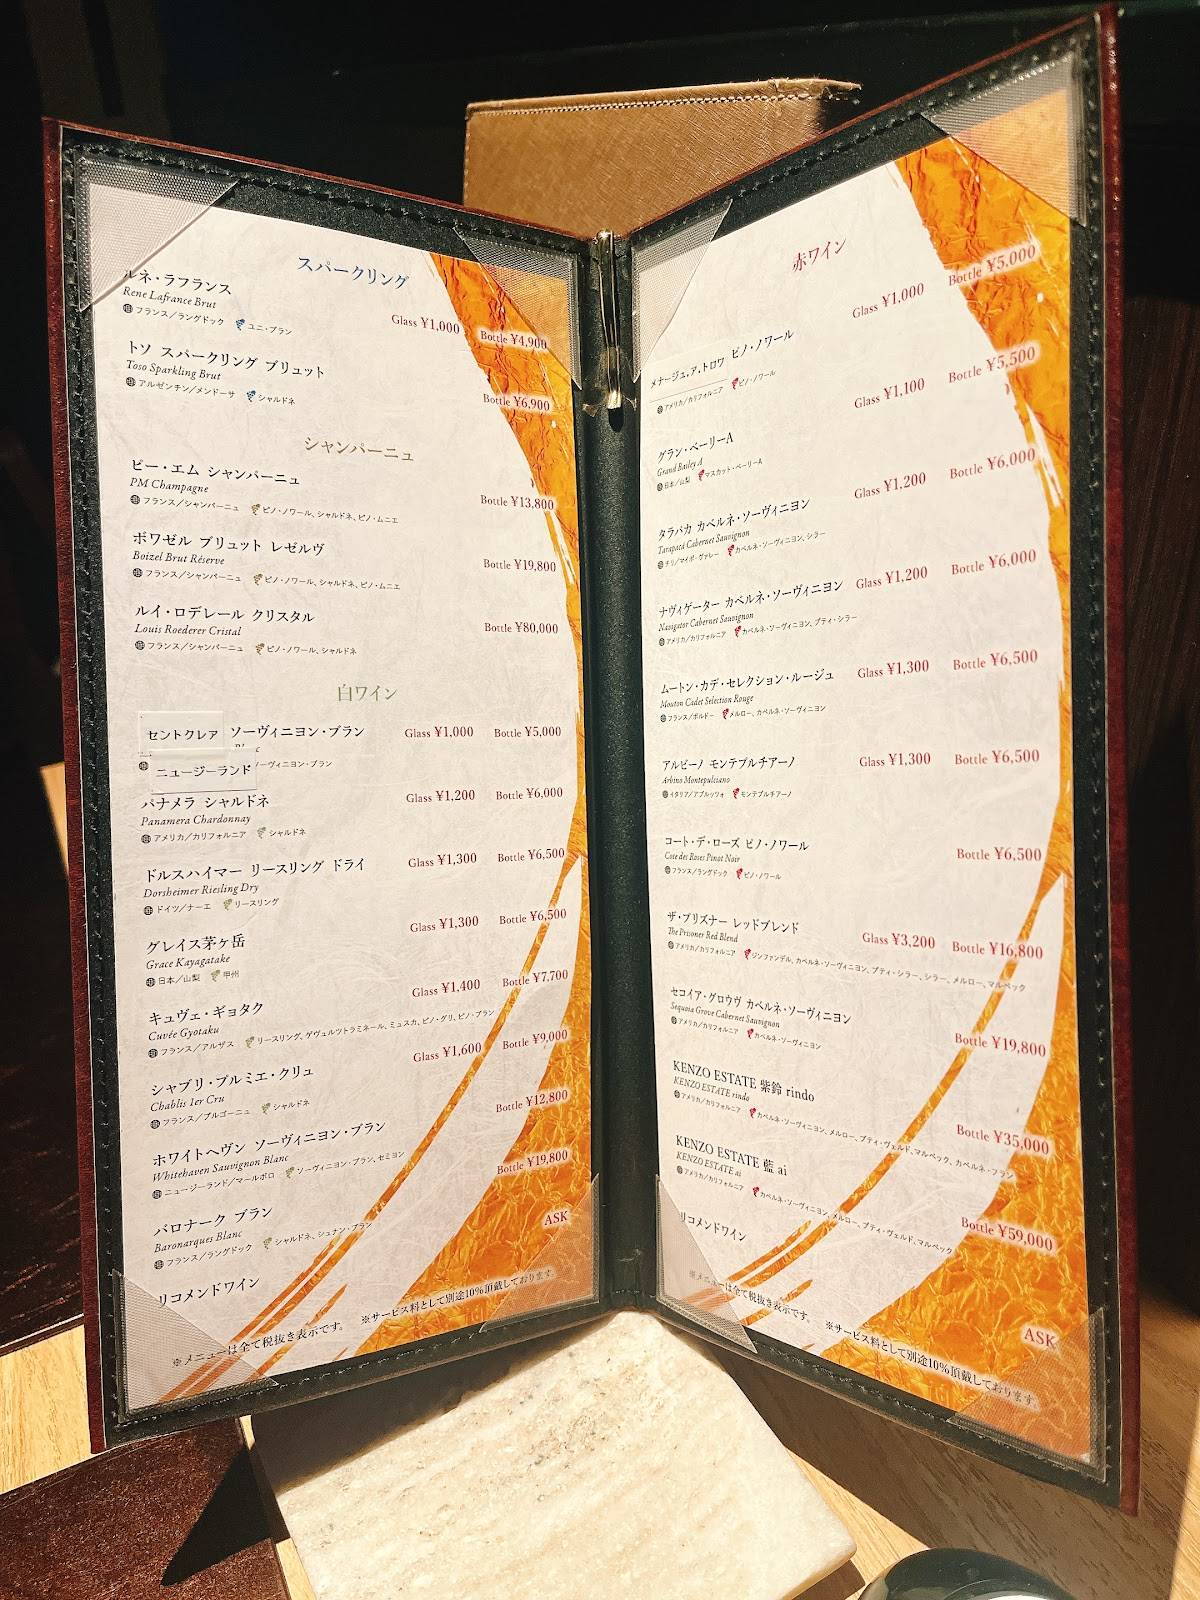 スパークリング
ルネ・ラフランス
Rene Lafrance Brut
フランス／ラングドック ユニ・ブラン
Glass ¥1,000 Bottle ¥4,900
トソ スパークリング ブリュット
Toso Sparkling Brut
アルゼンチン／メンドーサ シャルドネ
Bottle ¥6,900
シャンパーニュ
ピー・エム シャンパーニュ
PM Champagne
フランス／シャンパーニュ ピノ・ノワール、シャルドネ、ピノ・ムニエ
Bottle ¥13,800
ボワゼル ブリュット レゼルヴ
Boizel Brut Réserve
フランス／シャンパーニュ ピノ・ノワール、シャルドネ、ピノ・ムニエ
Bottle ¥19,800
ルイ・ロデレール クリスタル
Louis Roederer Cristal
フランス／シャンパーニュ ピノ・ノワール、シャルドネ
Bottle ¥80,000
白ワイン
セントクレア ソーヴィニヨン・ブラン
Glass ¥1,000 Bottle ¥5,000
ニュージーランド ソーヴィニヨン・ブラン
パナメラ シャルドネ
Panamera Chardonnay
アメリカ／カリフォルニア シャルドネ
Glass ¥1,200 Bottle ¥6,000
ドルスハイマー リースリング ドライ
Dorsheimer Riesling Dry
ドイツ／ナーエ リースリング
Glass ¥1,300 Bottle ¥6,500
グレイス茅ヶ岳
Grace Kayagatake
日本／山梨 甲州
Glass ¥1,300 Bottle ¥6,500
キュヴェ・ギョタク
Cuvée Gyotaku
フランス／アルザス リースリング、ゲヴュルツトラミネール、ミュスカ、ピノ・グリ、ピノ・ブラン
Glass ¥1,400 Bottle ¥7,700
シャブリ・プルミエ・クリュ
Chablis 1er Cru
フランス／ブルゴーニュ シャルドネ
Glass ¥1,600 Bottle ¥9,000
ホワイトヘヴン ソーヴィニヨン・ブラン
Whitehaven Sauvignon Blanc
ニュージーランド／マールボロ ソーヴィニヨン・ブラン、セミヨン
Bottle ¥12,800
バロナーク ブラン
Baronarques Blanc
フランス／ラングドック シャルドネ、シュナン・ブラン
Bottle ¥19,800
リコメンドワイン
ASK
※メニューは全て税抜き表示です。 ※サービス料として別途10％頂戴しております。
赤ワイン
メナージュ.ア.トロワ ピノ・ノワール
アメリカ／カリフォルニア ピノ・ノワール
Glass ¥1,000 Bottle ¥5,000
グラン・ベーリーA
Grand Bailey A
日本／山梨 マスカット・ベーリーA
Glass ¥1,100 Bottle ¥5,500
タラパカ カベルネ・ソーヴィニヨン
Tarapacá Cabernet Sauvignon
チリ／マイポ・ヴァレー カベルネ・ソーヴィニヨン、シラー
Glass ¥1,200 Bottle ¥6,000
ナヴィゲーター カベルネ・ソーヴィニヨン
Navigator Cabernet Sauvignon
アメリカ／カリフォルニア カベルネ・ソーヴィニヨン、プティ・シラー
Glass ¥1,200 Bottle ¥6,000
ムートン・カデ・セレクション・ルージュ
Mouton Cadet Selection Rouge
フランス／ボルドー メルロー、カベルネ・ソーヴィニヨン
Glass ¥1,300 Bottle ¥6,500
アルビーノ モンテプルチアーノ
Arbino Montepulciano
イタリア／アブルッツォ モンテプルチアーノ
Glass ¥1,300 Bottle ¥6,500
コート・デ・ローズ ピノ・ノワール
Cote des Roses Pinot Noir
フランス／ラングドック ピノ・ノワール
Bottle ¥6,500
ザ・プリズナー レッドブレンド
The Prisoner Red Blend
アメリカ／カリフォルニア ジンファンデル、カベルネ・ソーヴィニヨン、プティ・シラー、シラー、メルロー、マルベック
Glass ¥3,200 Bottle ¥16,800
セコイア・グロウヴ カベルネ・ソーヴィニヨン
Sequoia Grove Cabernet Sauvignon
アメリカ／カリフォルニア カベルネ・ソーヴィニヨン
Bottle ¥19,800
KENZO ESTATE 紫鈴 rindo
KENZO ESTATE rindo
アメリカ／カリフォルニア カベルネ・ソーヴィニヨン、メルロー、プティ・ヴェルド、マルベック、カベルネ・フラン
Bottle ¥35,000
KENZO ESTATE 藍 ai
KENZO ESTATE ai
アメリカ／カリフォルニア カベルネ・ソーヴィニヨン、メルロー、プティ・ヴェルド、マルベック
Bottle ¥59,000
リコメンドワイン
ASK
※メニューは全て税抜き表示です。 ※サービス料として別途10％頂戴しております。